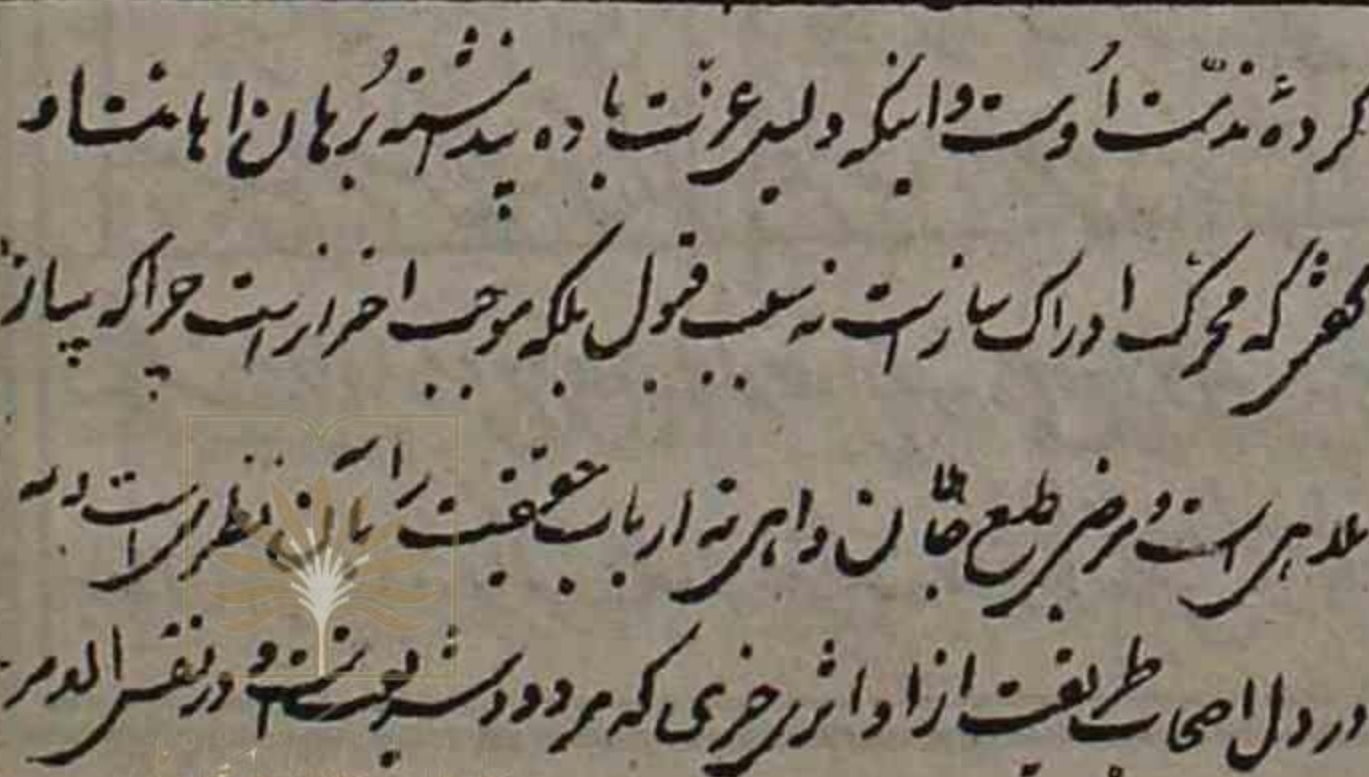 کردهٔ مذمّت اوست و اینکه دلیل عزّت باده پنداشته بُرهان اهانت او
محرک ادراک نیاز است نه سبب قبول بلکه موجب احترازست چرا که پیاز
ملاهی است و مرضی طبع خالیان و اهی نه ارباب حقیقت را بآن نظریست و نه
در دل اصحاب طریقت ازو اثری چیزی که مردود شریعت است و در نفس الامر